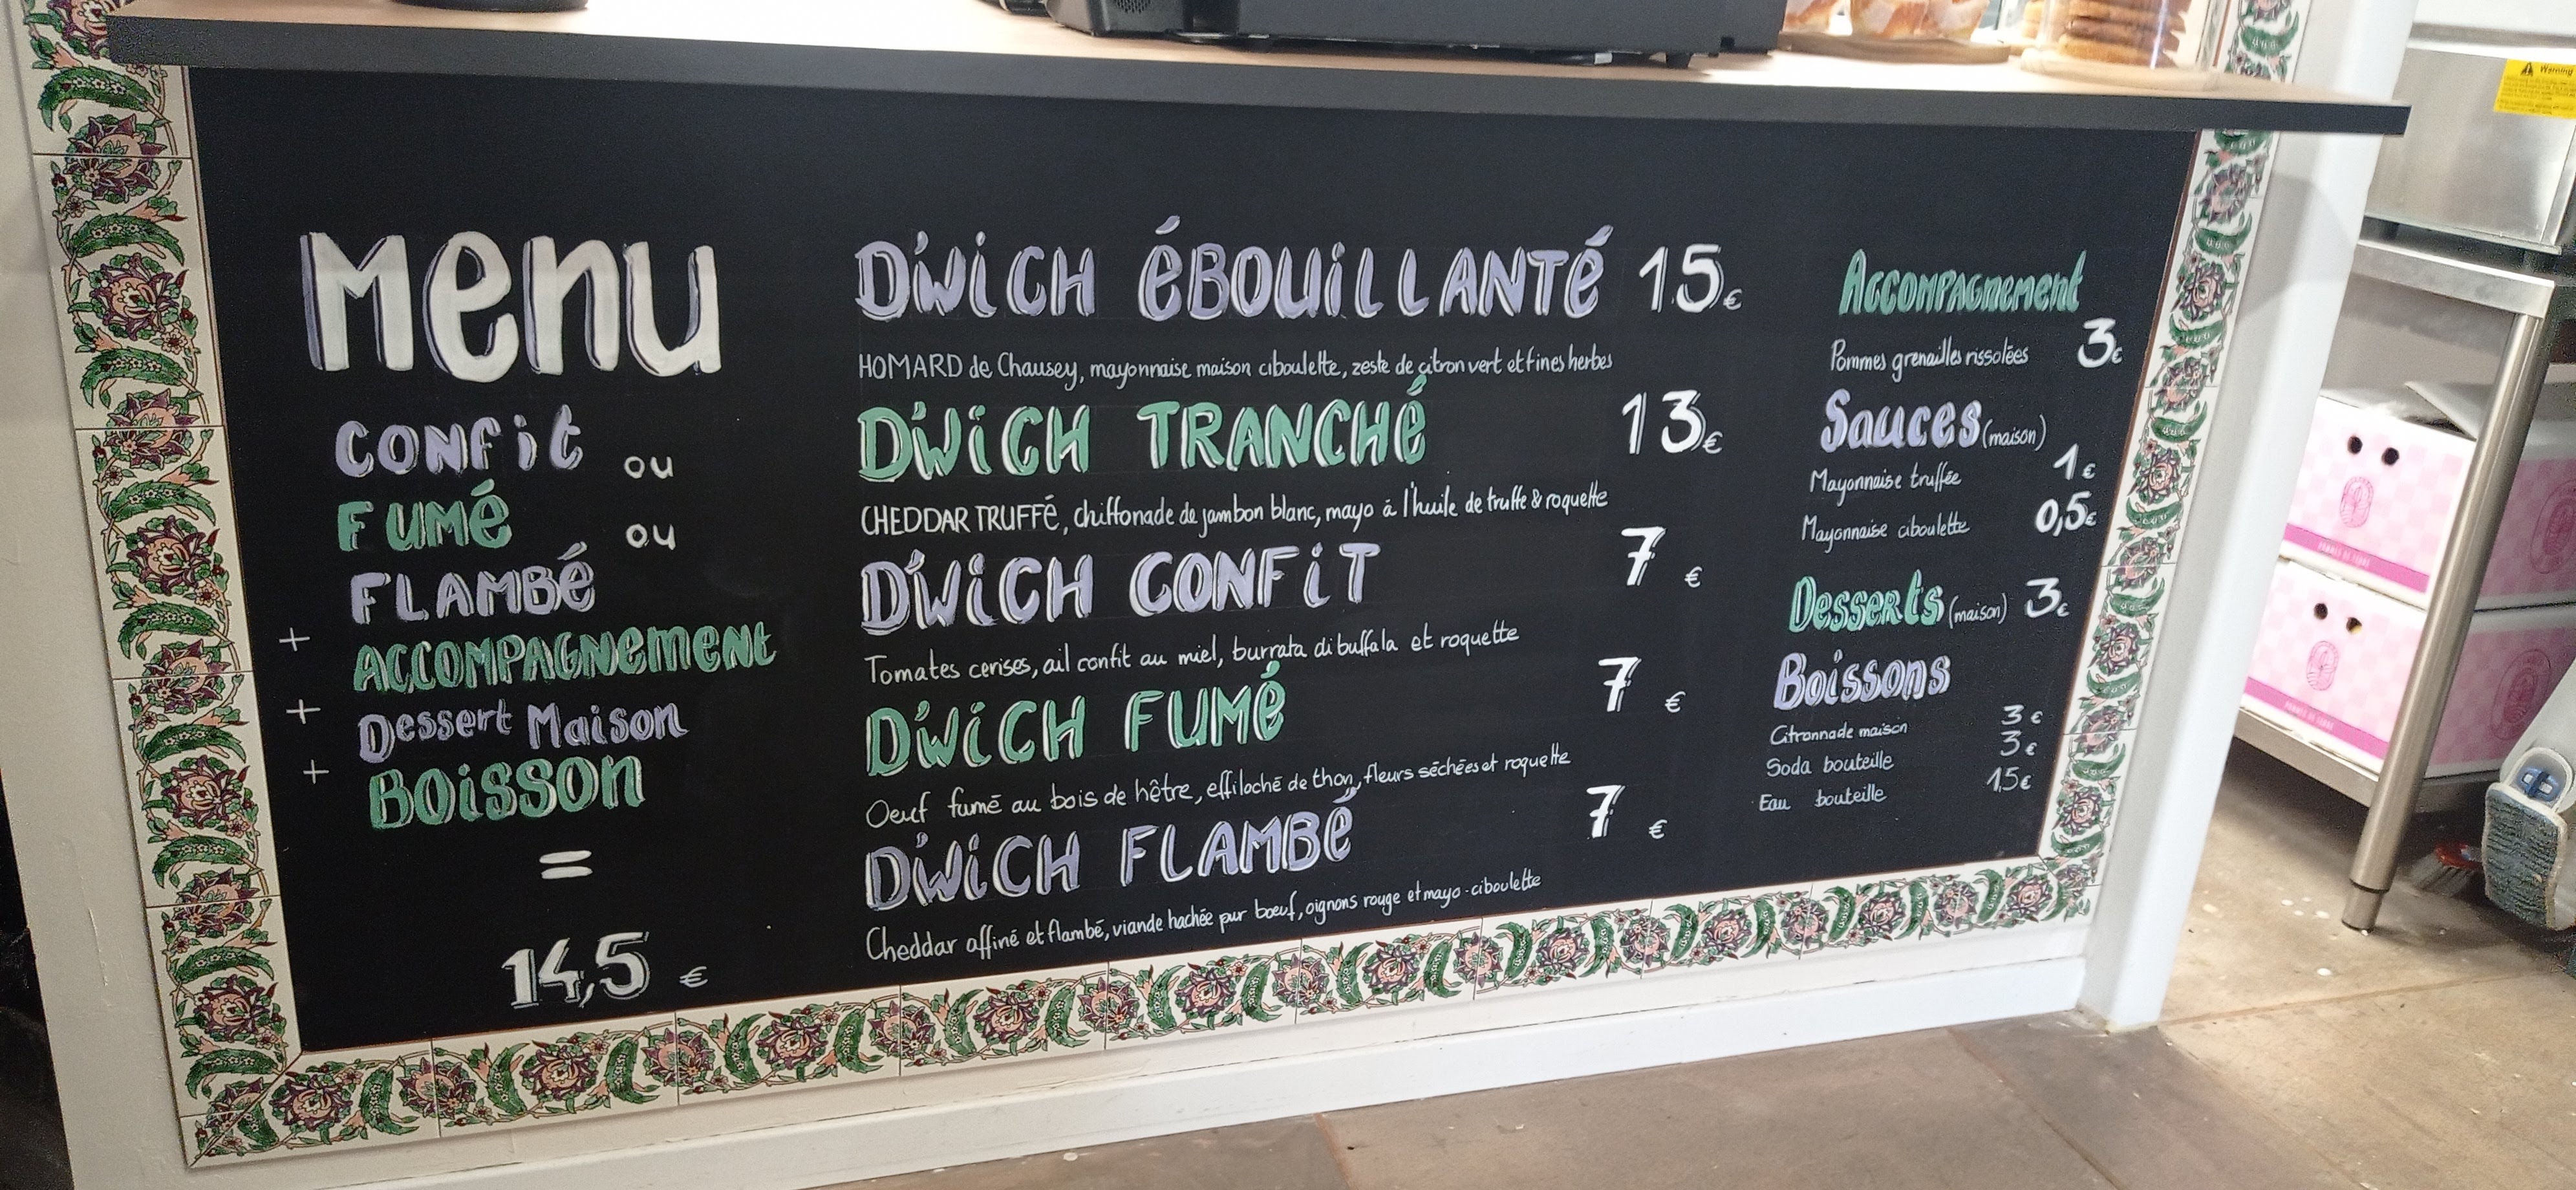 Menu
CONFiT ou
FUMÉ ou
FLAMBÉ
+ ACCOMPAGNEMENT
+ Dessert Maison
+ BOISSON
=
14,5 €
D'WiCH ÉBOUiLLANTÉ 15€
HOMARD de Chausey, mayonnaise maison ciboulette, zeste de citron vert et fines herbes
D'WiCH TRANCHÉ 13€
CHEDDAR TRUFFÉ, chiffonade de jambon blanc, mayo à l'huile de truffe & roquette
D'WiCH CONFiT 7 €
Tomates cerises, ail confit au miel, burrata di buffala et roquette
D'WiCH FUMÉ 7 €
Oeuf fumé au bois de hêtre, effiloché de thon, fleurs séchées et roquette
D'WiCH FLAMBÉ 7 €
Cheddar affiné et flambé, viande hachée pur boeuf, oignons rouge et mayo-ciboulette
ACCOMPAGNEMENT
Pommes grenailles rissolées 3€
Sauces (maison)
Mayonnaise truffée 1€
Mayonnaise ciboulette 0,5€
Desserts (maison) 3€
Boissons
Citronnade maison 3€
Soda bouteille 3€
Eau bouteille 1,5€
Warning
POMMES DE TERRE
POMMES DE TERRE